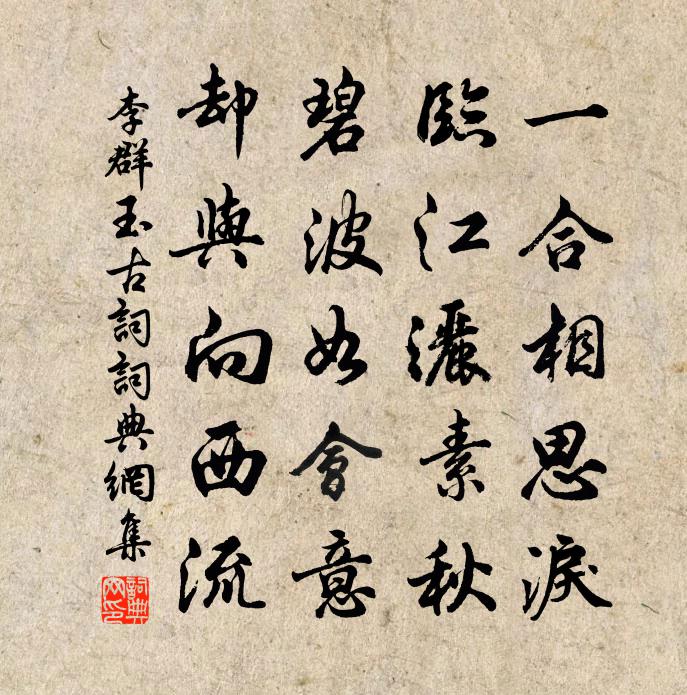 一合相思淚
臨江灑素秋
碧波如會意
却與向西流
李群玉古詞詞典網集
詞典网印